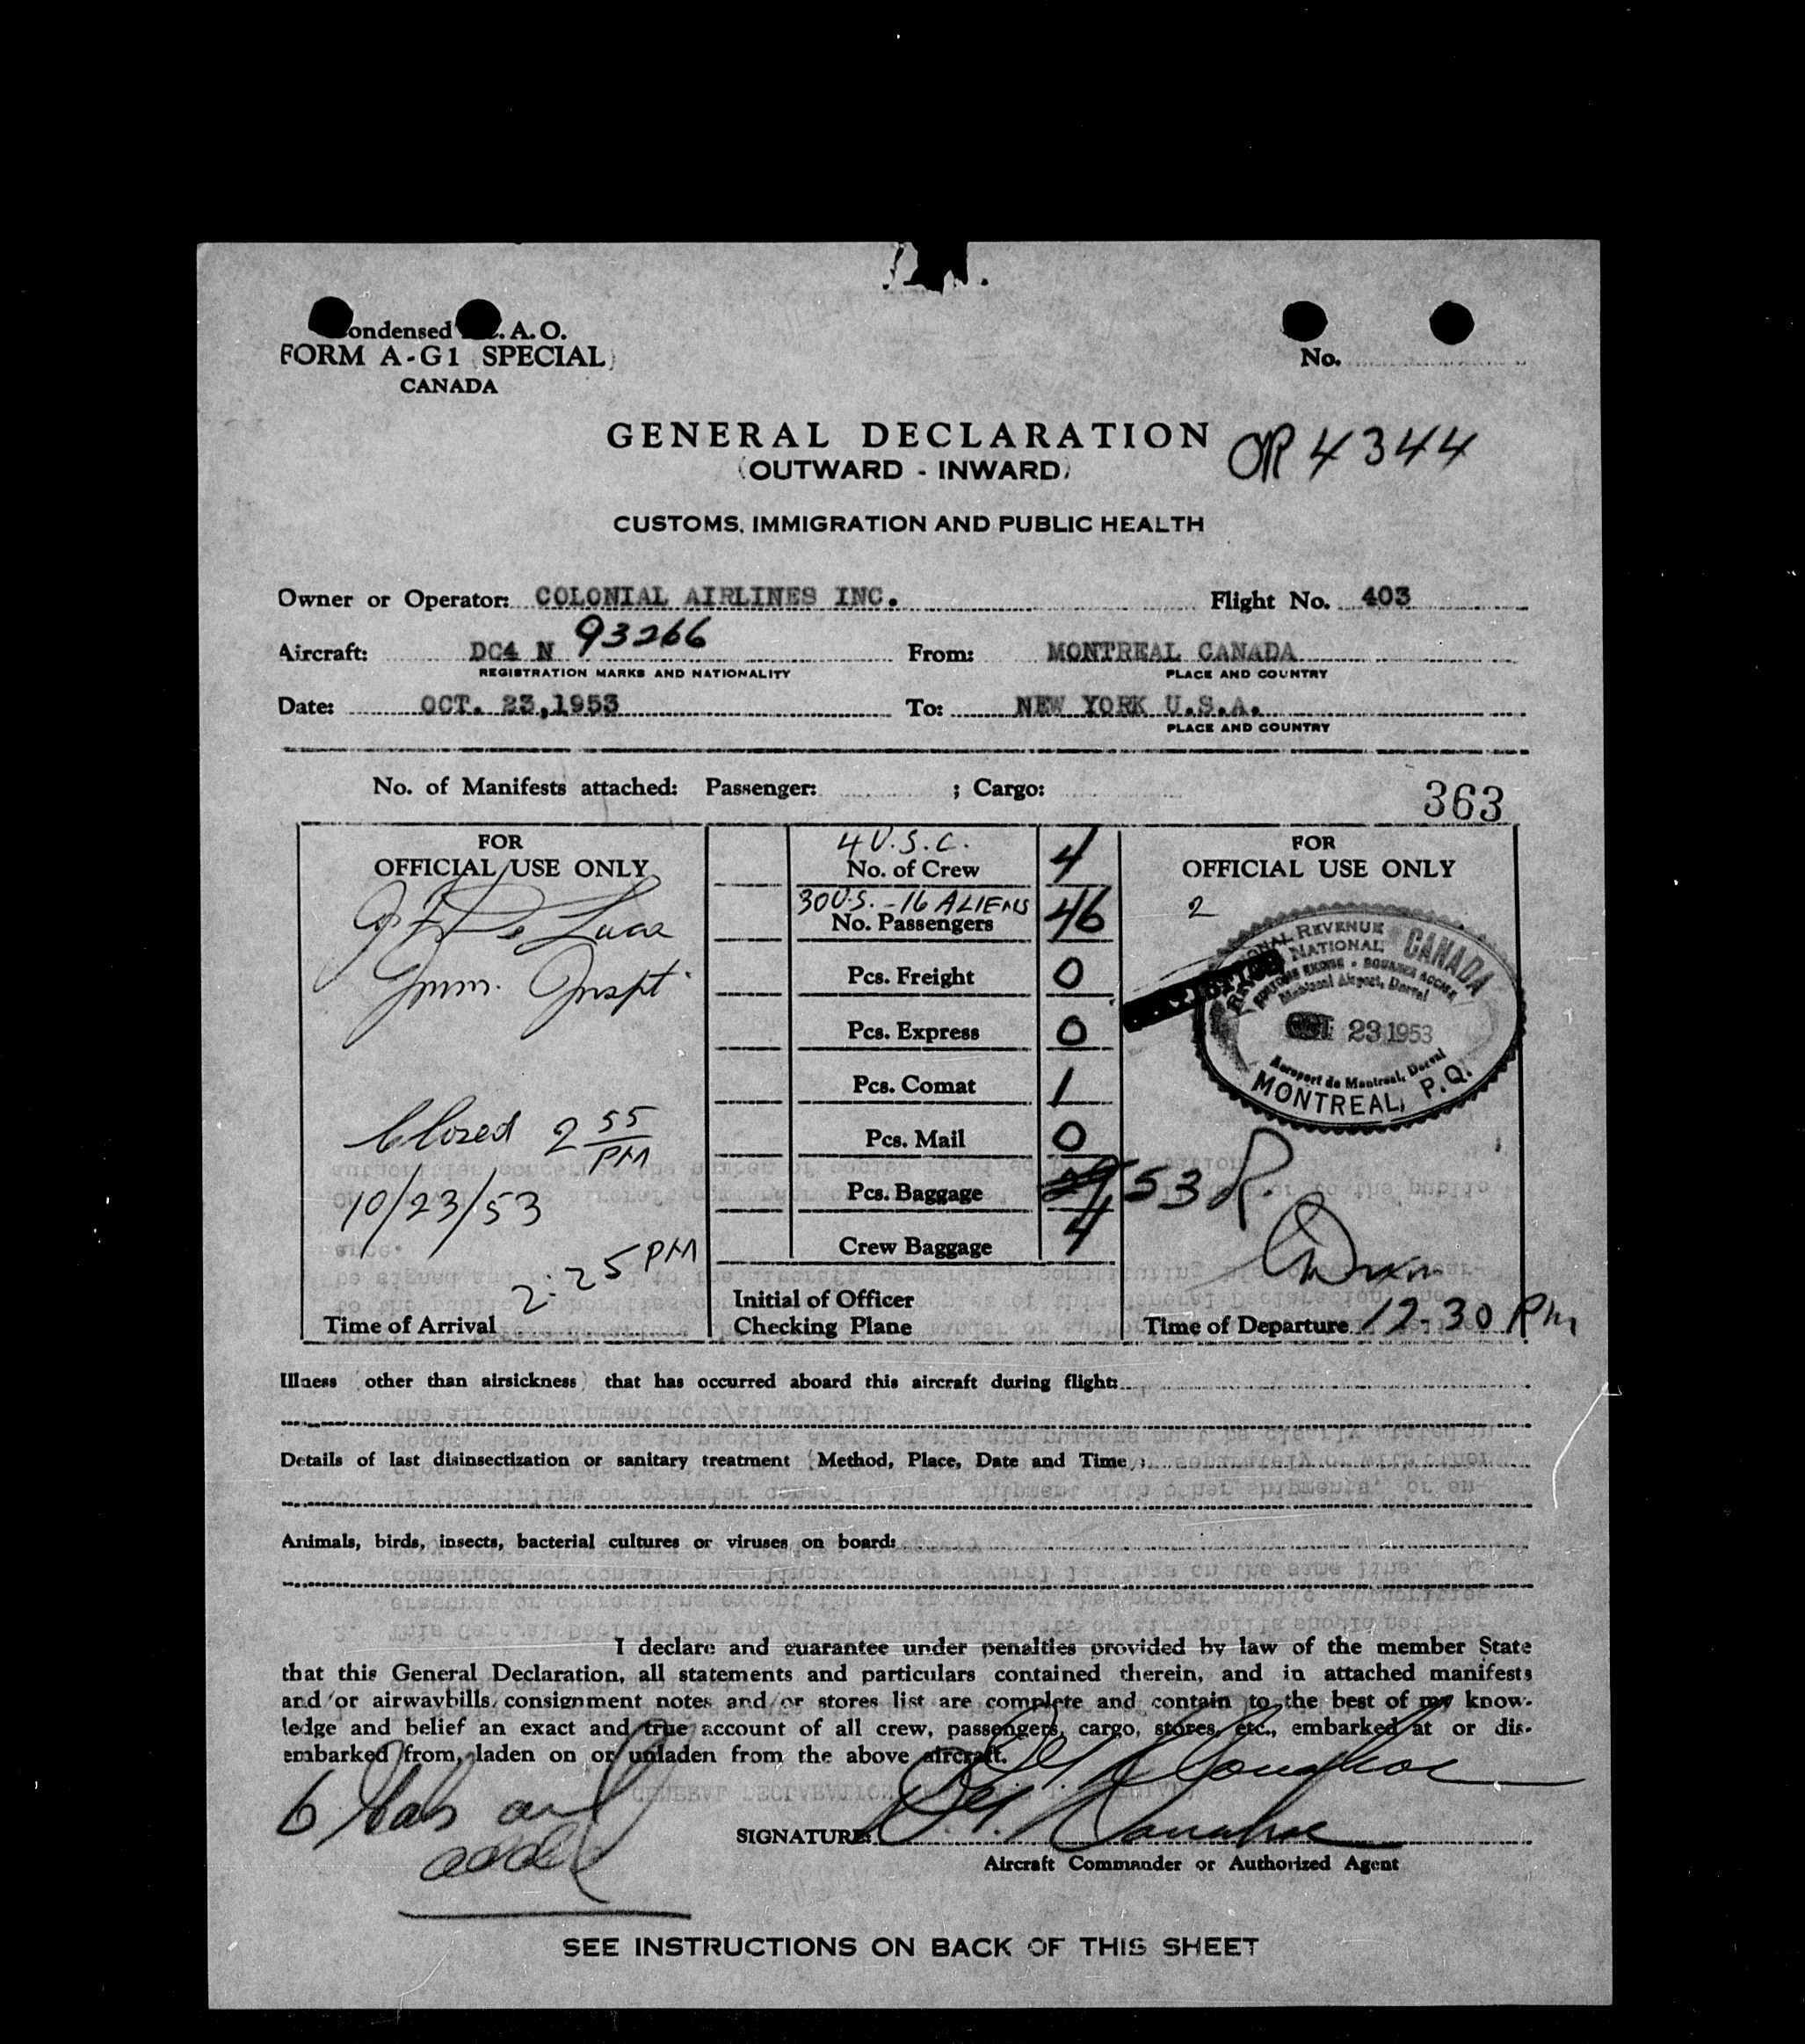 ondensed . A. O.
FORM A-G1 (SPECIAL)
CANADA
No.
GENERAL DECLARATION
(OUTWARD - INWARD)
OR 4344
CUSTOMS, IMMIGRATION AND PUBLIC HEALTH
Owner or Operator: COLONIAL AIRLINES INC. Flight No. 403
Aircraft: DC4 N 93266 From: MONTREAL CANADA
REGISTRATION MARKS AND NATIONALITY PLACE AND COUNTRY
Date: OCT. 23,1953 To: NEW YORK U.S.A.
PLACE AND COUNTRY
No. of Manifests attached: Passenger: ; Cargo:
363
FOR
OFFICIAL USE ONLY
De Luca
Imm. Inspt.
Closed 2 55 PM
10/23/53
2:25 PM
Time of Arrival
4 U.S.C.
No. of Crew 4
30 U.S. - 16 ALIENS
No. Passengers 46
Pcs. Freight 0
Pcs. Express 0
Pcs. Comat 1
Pcs. Mail 0
Pcs. Baggage 53
Crew Baggage 4
Initial of Officer
Checking Plane
FOR
OFFICIAL USE ONLY
2
REVENUE
NATIONAL
CANADA
Montreal Airport, Dorval
OCT 23 1953
Aeroport de Montreal, Dorval
MONTREAL, P.Q.
Time of Departure 12.30 PM
Illness (other than airsickness) that has occurred aboard this aircraft during flight:
Details of last disinsectization or sanitary treatment (Method, Place, Date and Time):
Animals, birds, insects, bacterial cultures or viruses on board:
I declare and guarantee under penalties provided by law of the member State
that this General Declaration, all statements and particulars contained therein, and in attached manifests
and/or airwaybills/consignment notes and/or stores list are complete and contain to the best of my know-
ledge and belief an exact and true account of all crew, passengers, cargo, stores, etc., embarked at or dis-
embarked from, laden on or unladen from the above aircraft.
6
added
SIGNATURE:
Aircraft Commander or Authorized Agent
SEE INSTRUCTIONS ON BACK OF THIS SHEET